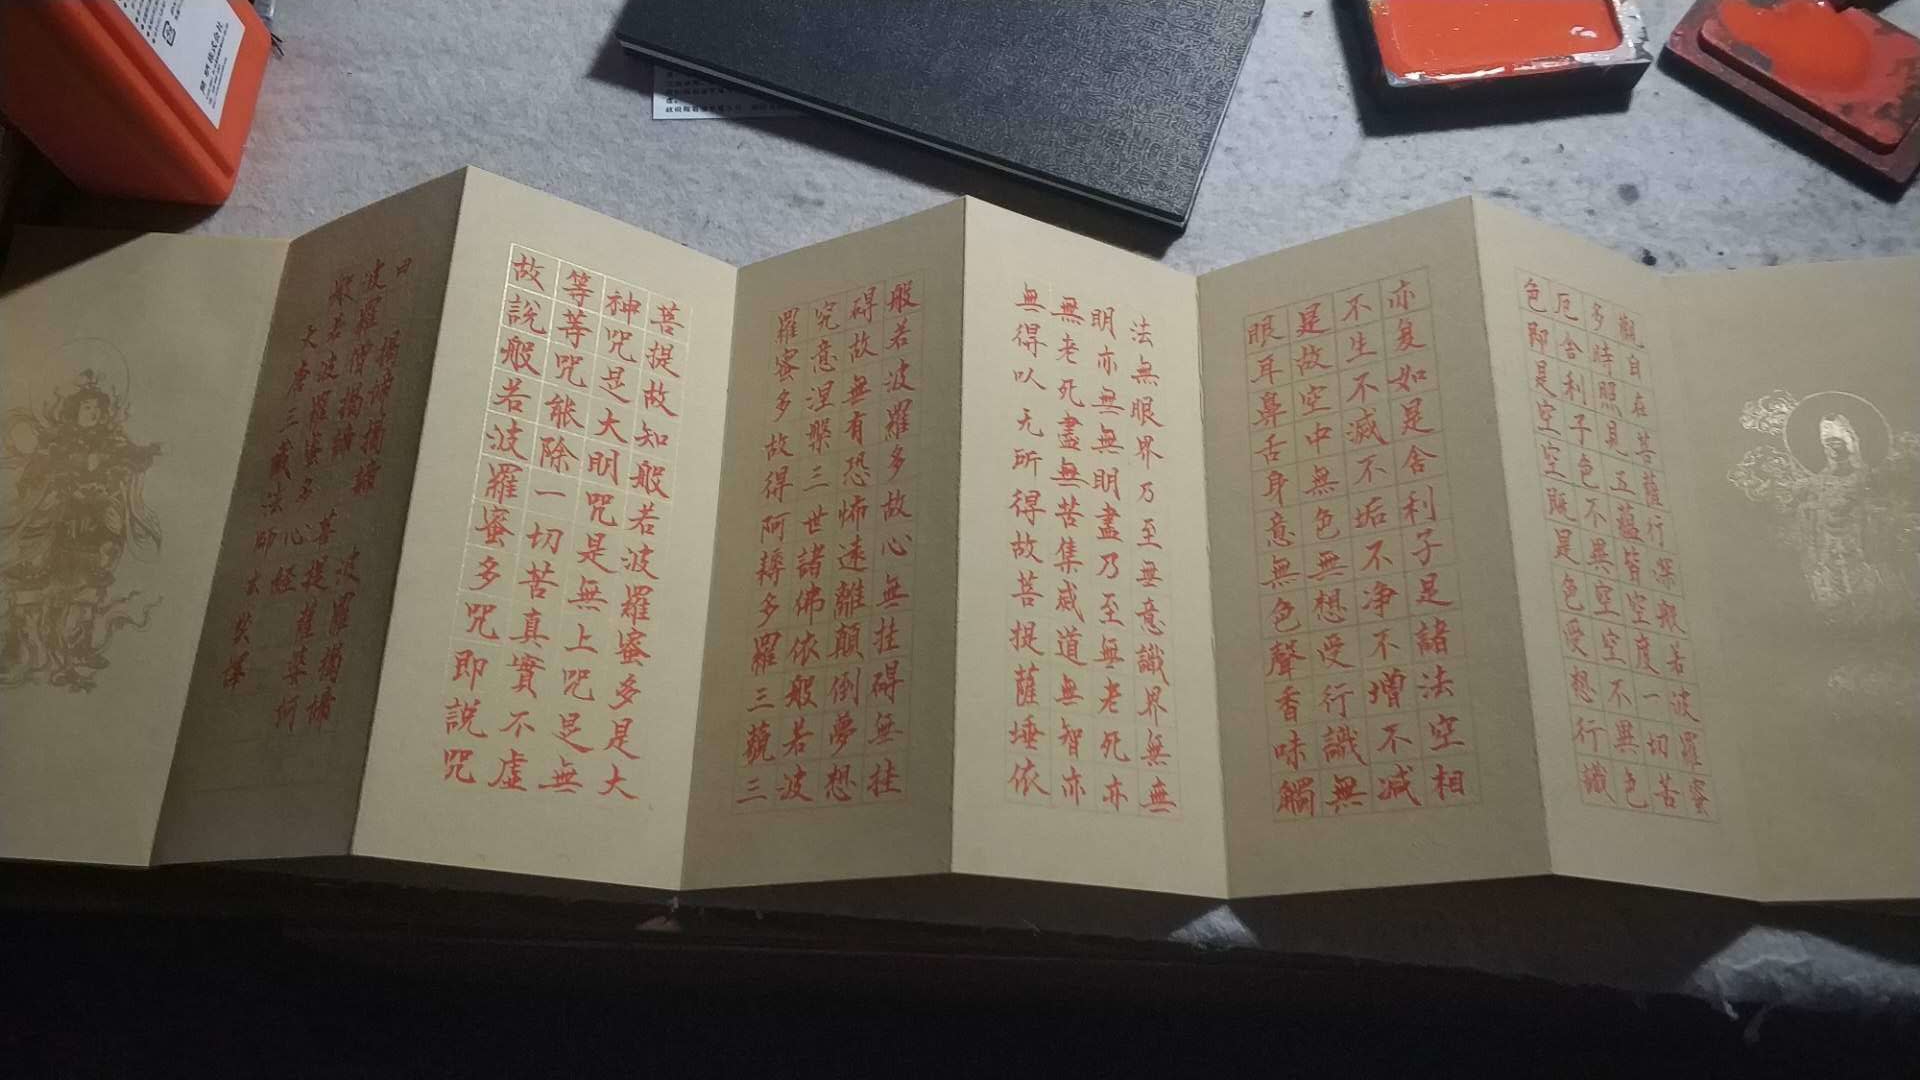 觀自在菩薩行深般若波羅蜜
多時照見五蘊皆空度一切苦
厄舍利子色不異空空不異色
色即是空空既是色受想行識
亦复如是舍利子是諸法空相
不生不滅不垢不净不增不减
是故空中無色無想受行識無
眼耳鼻舌身意無色聲香味觸
法無眼界乃至無意識界無無
明亦無無明盡乃至無老死亦
無老死盡無苦集滅道無智亦
無得以无所得故菩提薩埵依
般若波羅多故心無挂碍無挂
碍故無有恐怖遠離顛倒夢想
究意涅槃三世諸佛依般若波
羅蜜多故得阿耨多羅三藐三
菩提故知般若波羅蜜多是大
神咒是大明咒是無上咒是無
等等咒能除一切苦真實不虛
故說般若波羅蜜多咒即説咒
曰 揭諦揭諦 波羅揭諦
波羅僧揭諦 菩提薩婆诃
般若波羅蜜多心経
大唐三藏法師玄奘譯